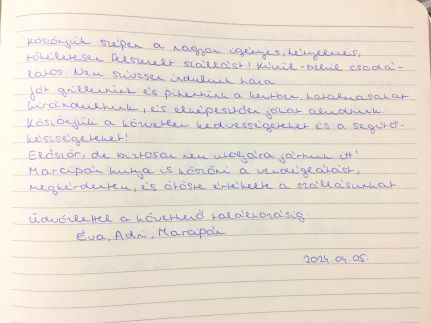 Köszönjük szépen a nagyon igényes, kényelmes,
tökéletesen felszerelt szállást! Kívül-belül csodá-
latos. Nem szívesen indulunk haza.
Jót grilleztünk és pihentünk a kertben, hatalmasakat
kirándultunk, és elképesztően jókat aludtunk.
Köszönjük a közvetlen kedvességeteket és a segítő-
készségeteket!
Először, de biztosan nem utoljára jártunk itt!
Marcipán kutya is köszöni a vendéglátást,
megkérdeztem, és ötösre értékelte a szállásunkat
Üdvözlettel a következő találkozásig:
Éva, Adri, Marcipán
2024.04.05.